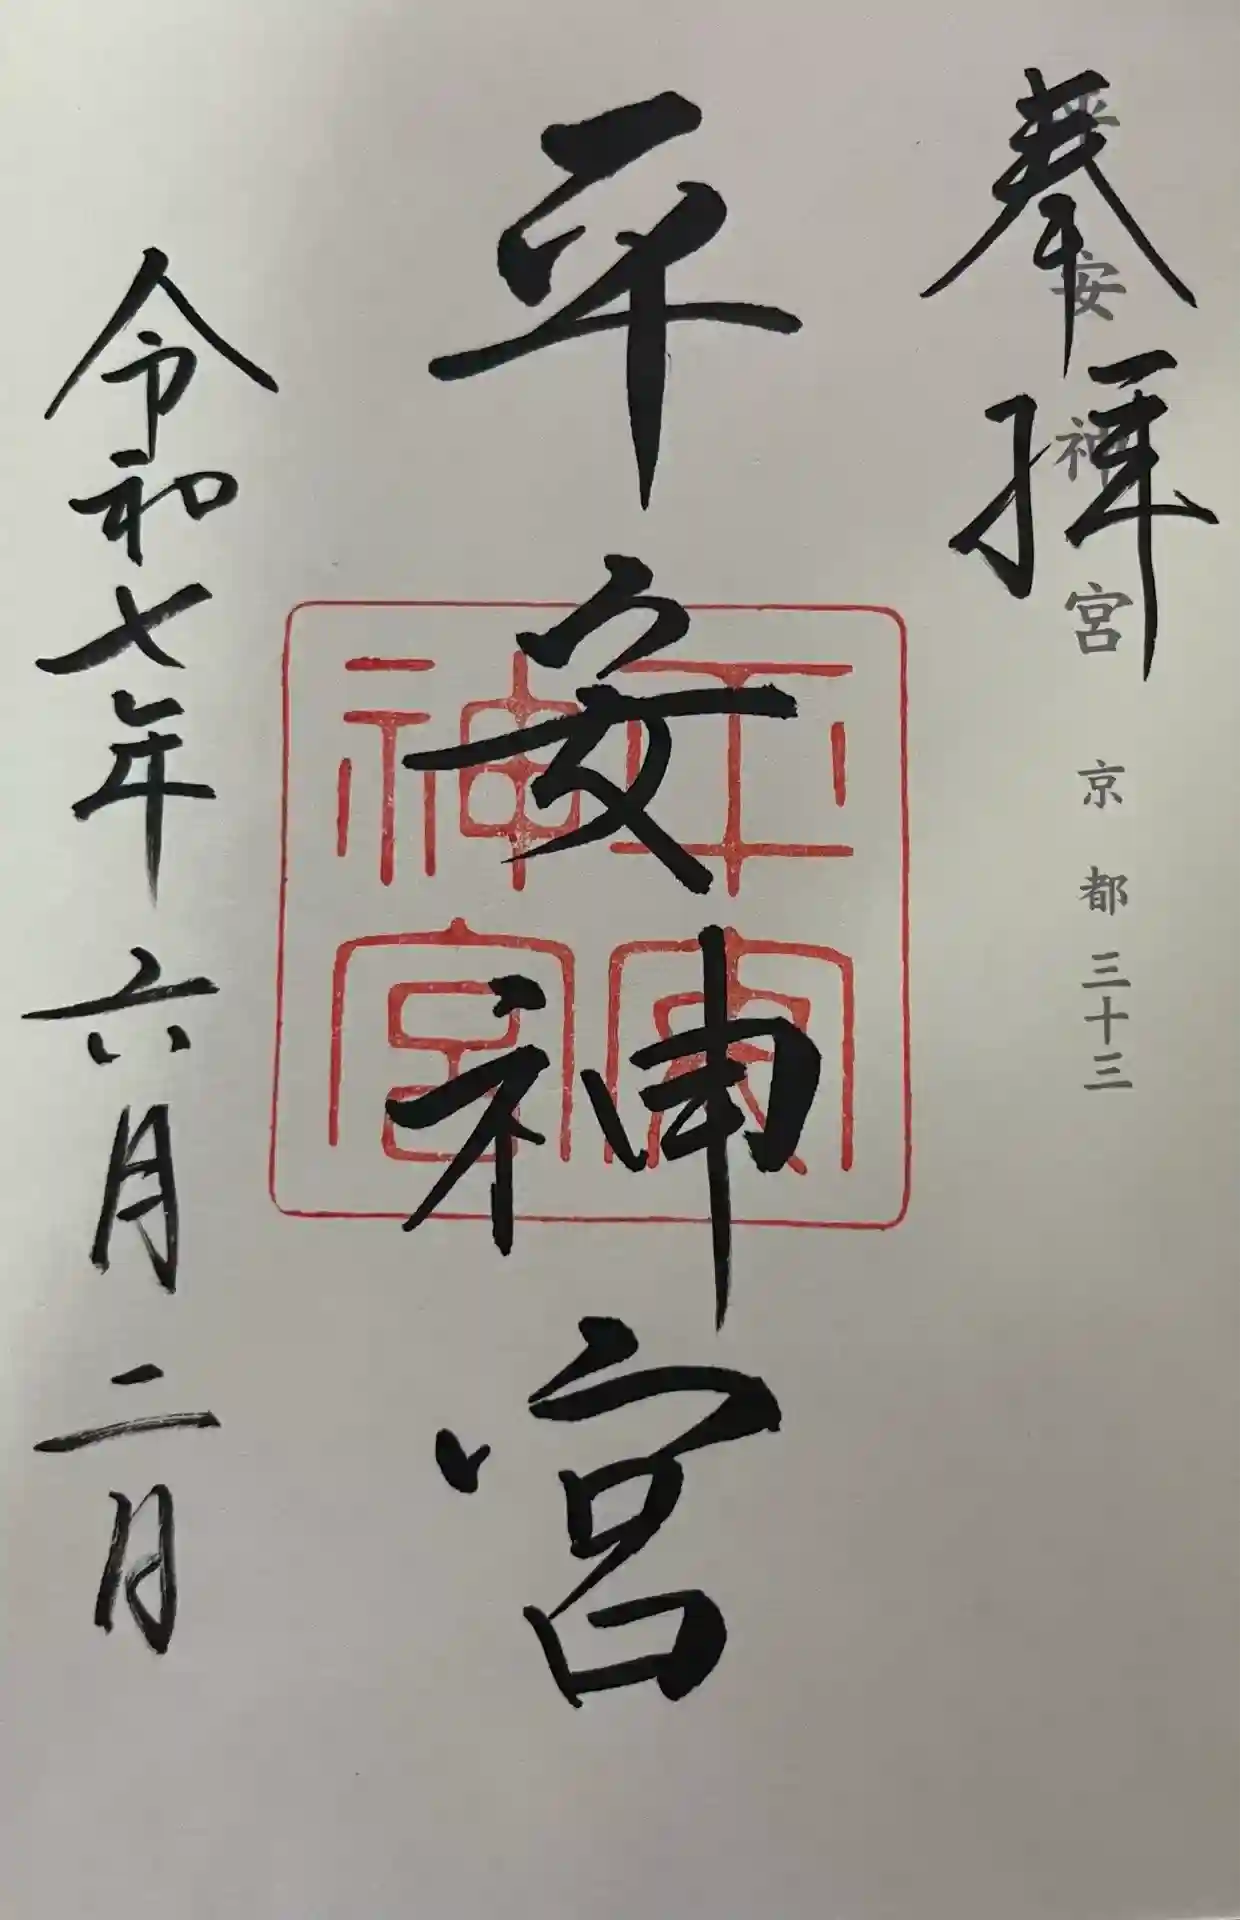 奉拝
平安神宮 京都 三十三
平安神宮
平安神宮
令和七年六月二日